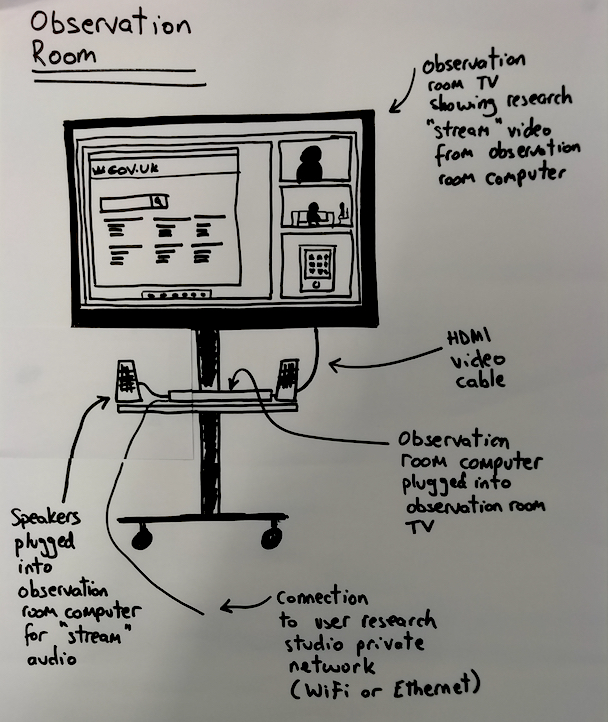 Observation
Room
observation
room TV
showing research
"stream" video
from observation
room computer
GOV.UK
HDMI
video
cable
Observation
room computer
plugged into
observation room
TV
Speakers
plugged
into
observation
room computer
for "stream"
audio
Connection
to user research
studio private
network
(WiFi or Ethernet)